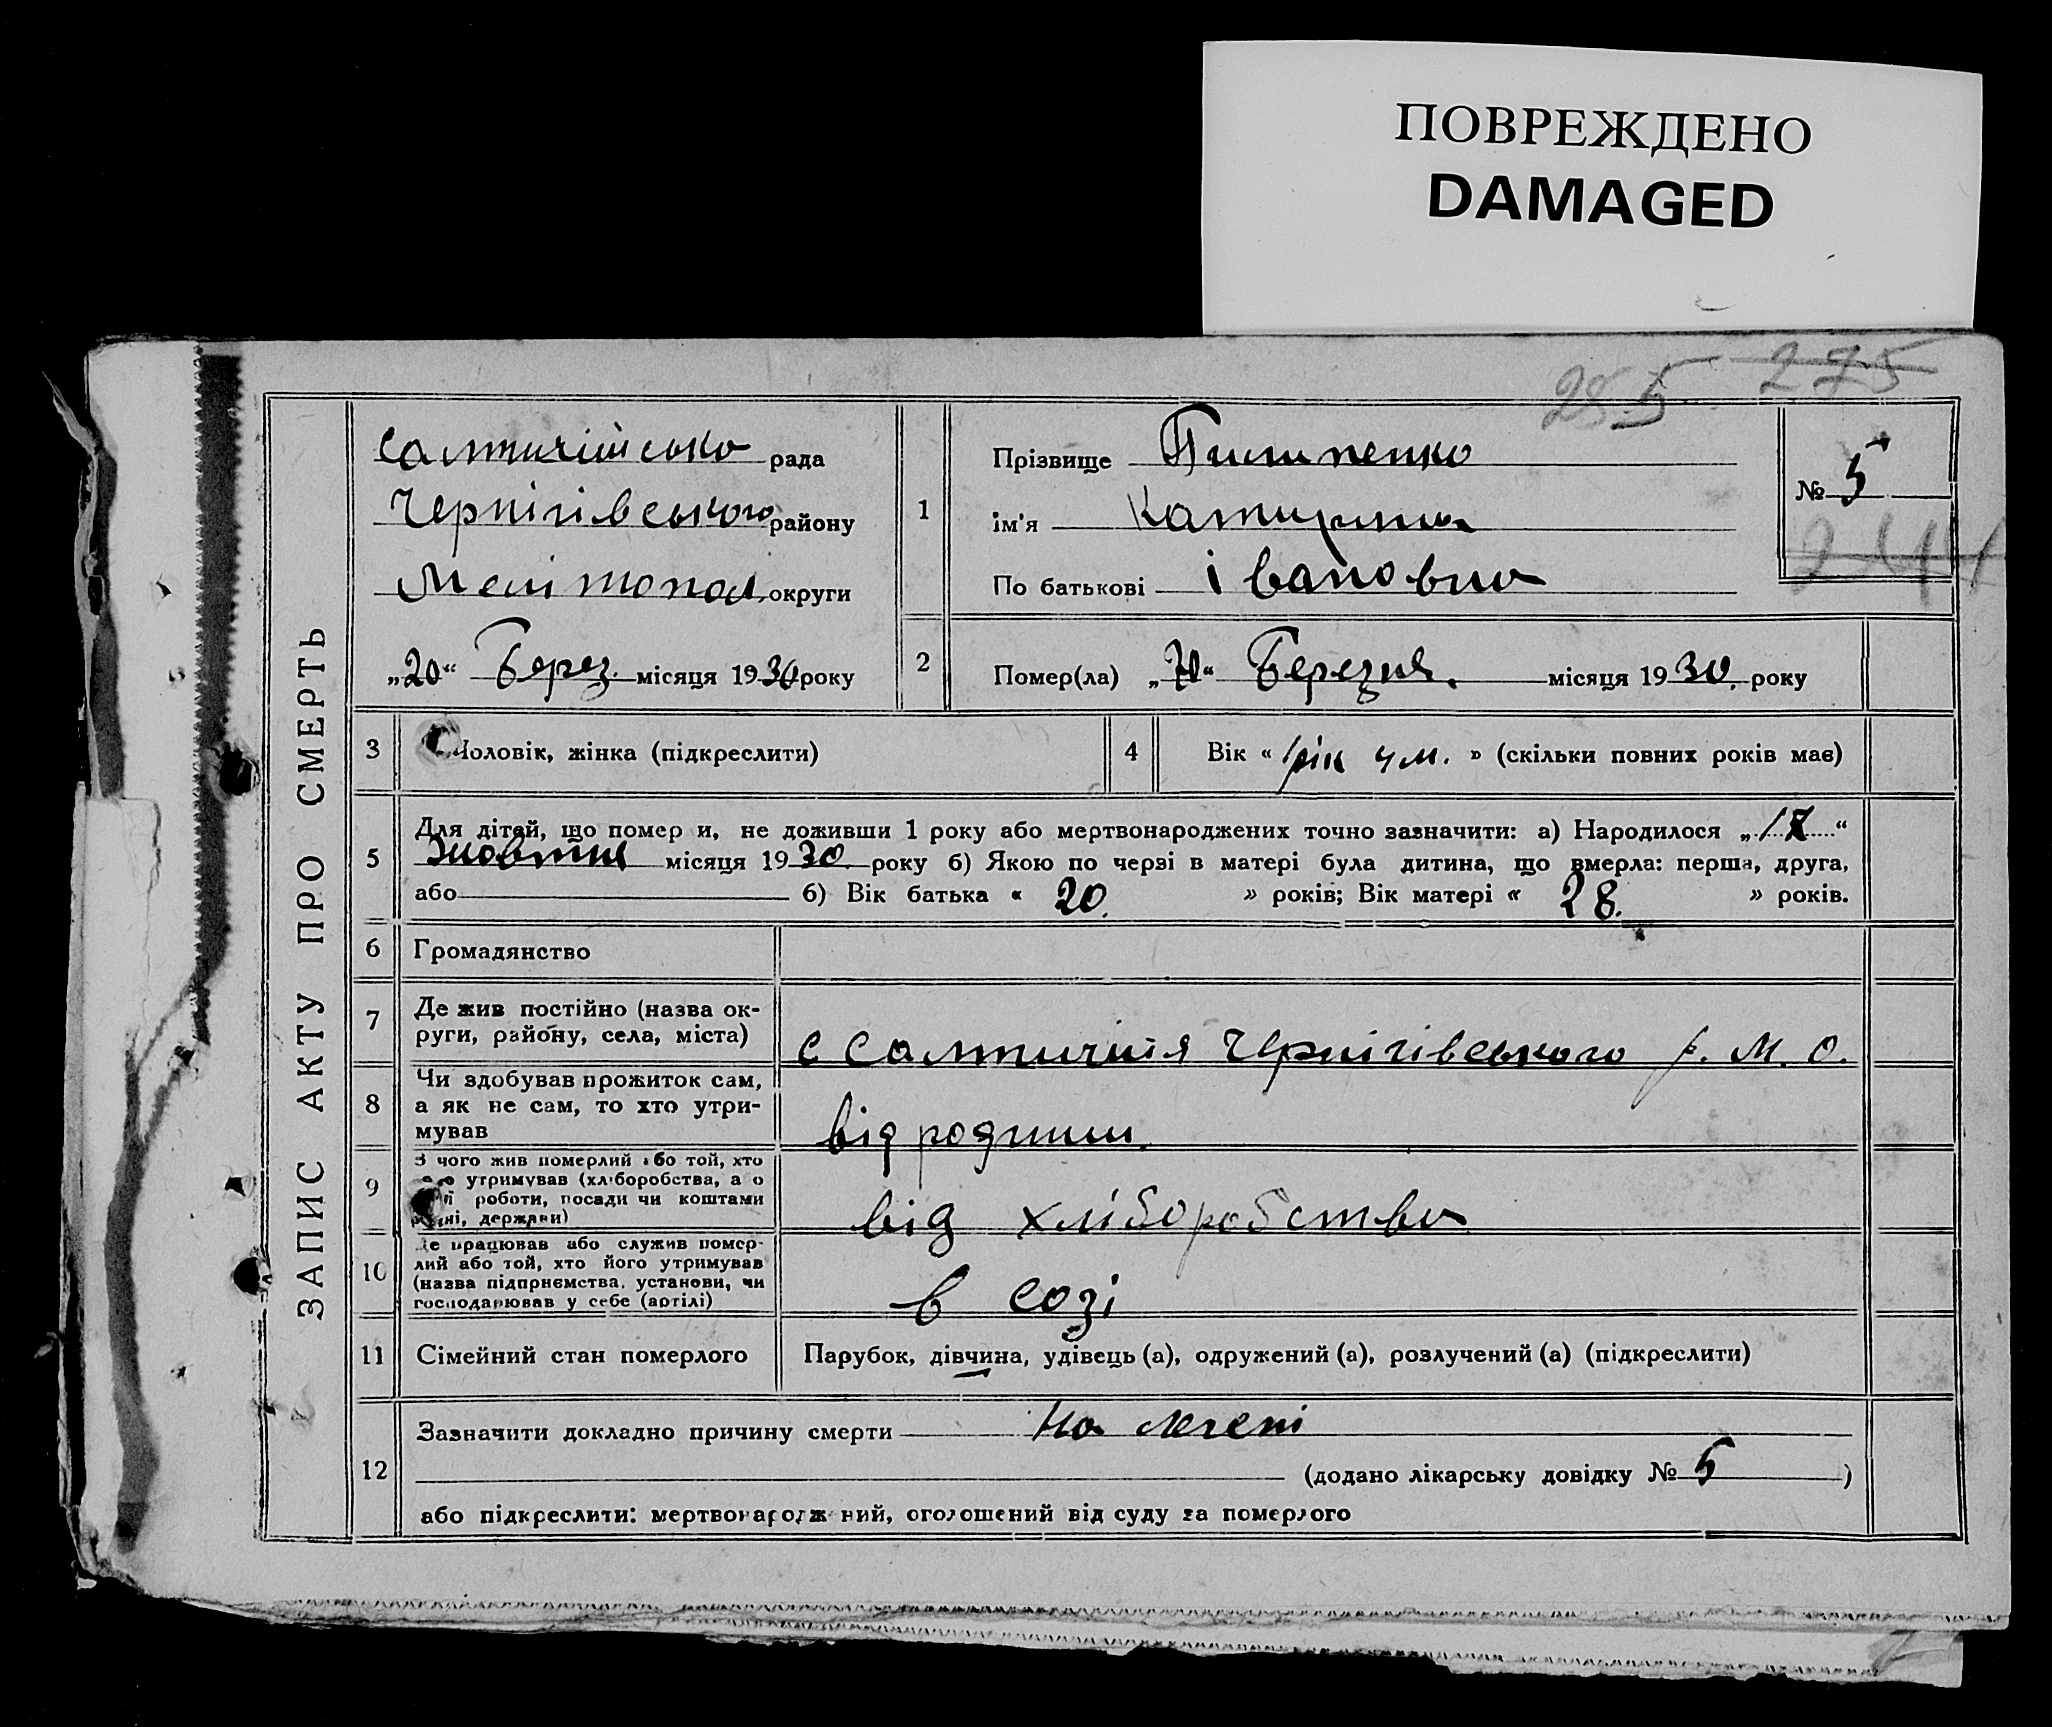 ПОВРЕЖДЕНО
DAMAGED
285 275
ЗАПИС АКТУ ПРО СМЕРТЬ
Салтичійська рада
Чернігівського району
Мелітопол. округи
„20“ Берез. місяця 1930 року
1
Прізвище Пилипенко
ім'я Катирина
По батькові Івановна
№ 5
244
2
Помер(ла) „ “ Березня. місяця 1930. року
3 Чоловік, жінка (підкреслити)
4 Вік « 1 рік 4 м. » (скільки повних років має)
5 Для дітей, що помер и, не доживши 1 року або мертвонароджених точно зазначити: а) Народилося „ “
Жовтня місяця 1930 року б) Якою по черзі в матері була дитина, що вмерла: перша, друга,
або б) Вік батька « 20. » років; Вік матері « 28. » років.
6 Громадянство
7 Де жив постійно (назва ок-
руги, району, села, міста)
с Салтичія Чернігівського р. М. О.
8 Чи здобував прожиток сам,
а як не сам, то хто утри-
мував
від родини
9 З чого жив померлий або той, хто
утримував (хліборобства, а о
роботи, посади чи коштами
держави)
від хліборобства
10 Де працював або служив помер-
лий або той, хто його утримував
(назва підприємства, установи, чи
господарював у себе (артілі)
в созі
11 Сімейний стан померлого Парубок, дівчина, удівець (а), одружений (а), розлучений (а) (підкреслити)
12 Зазначити докладно причину смерти На легені
(додано лікарську довідку № 5 )
або підкреслити: мертвонародж ний, оголошений від суду за померлого